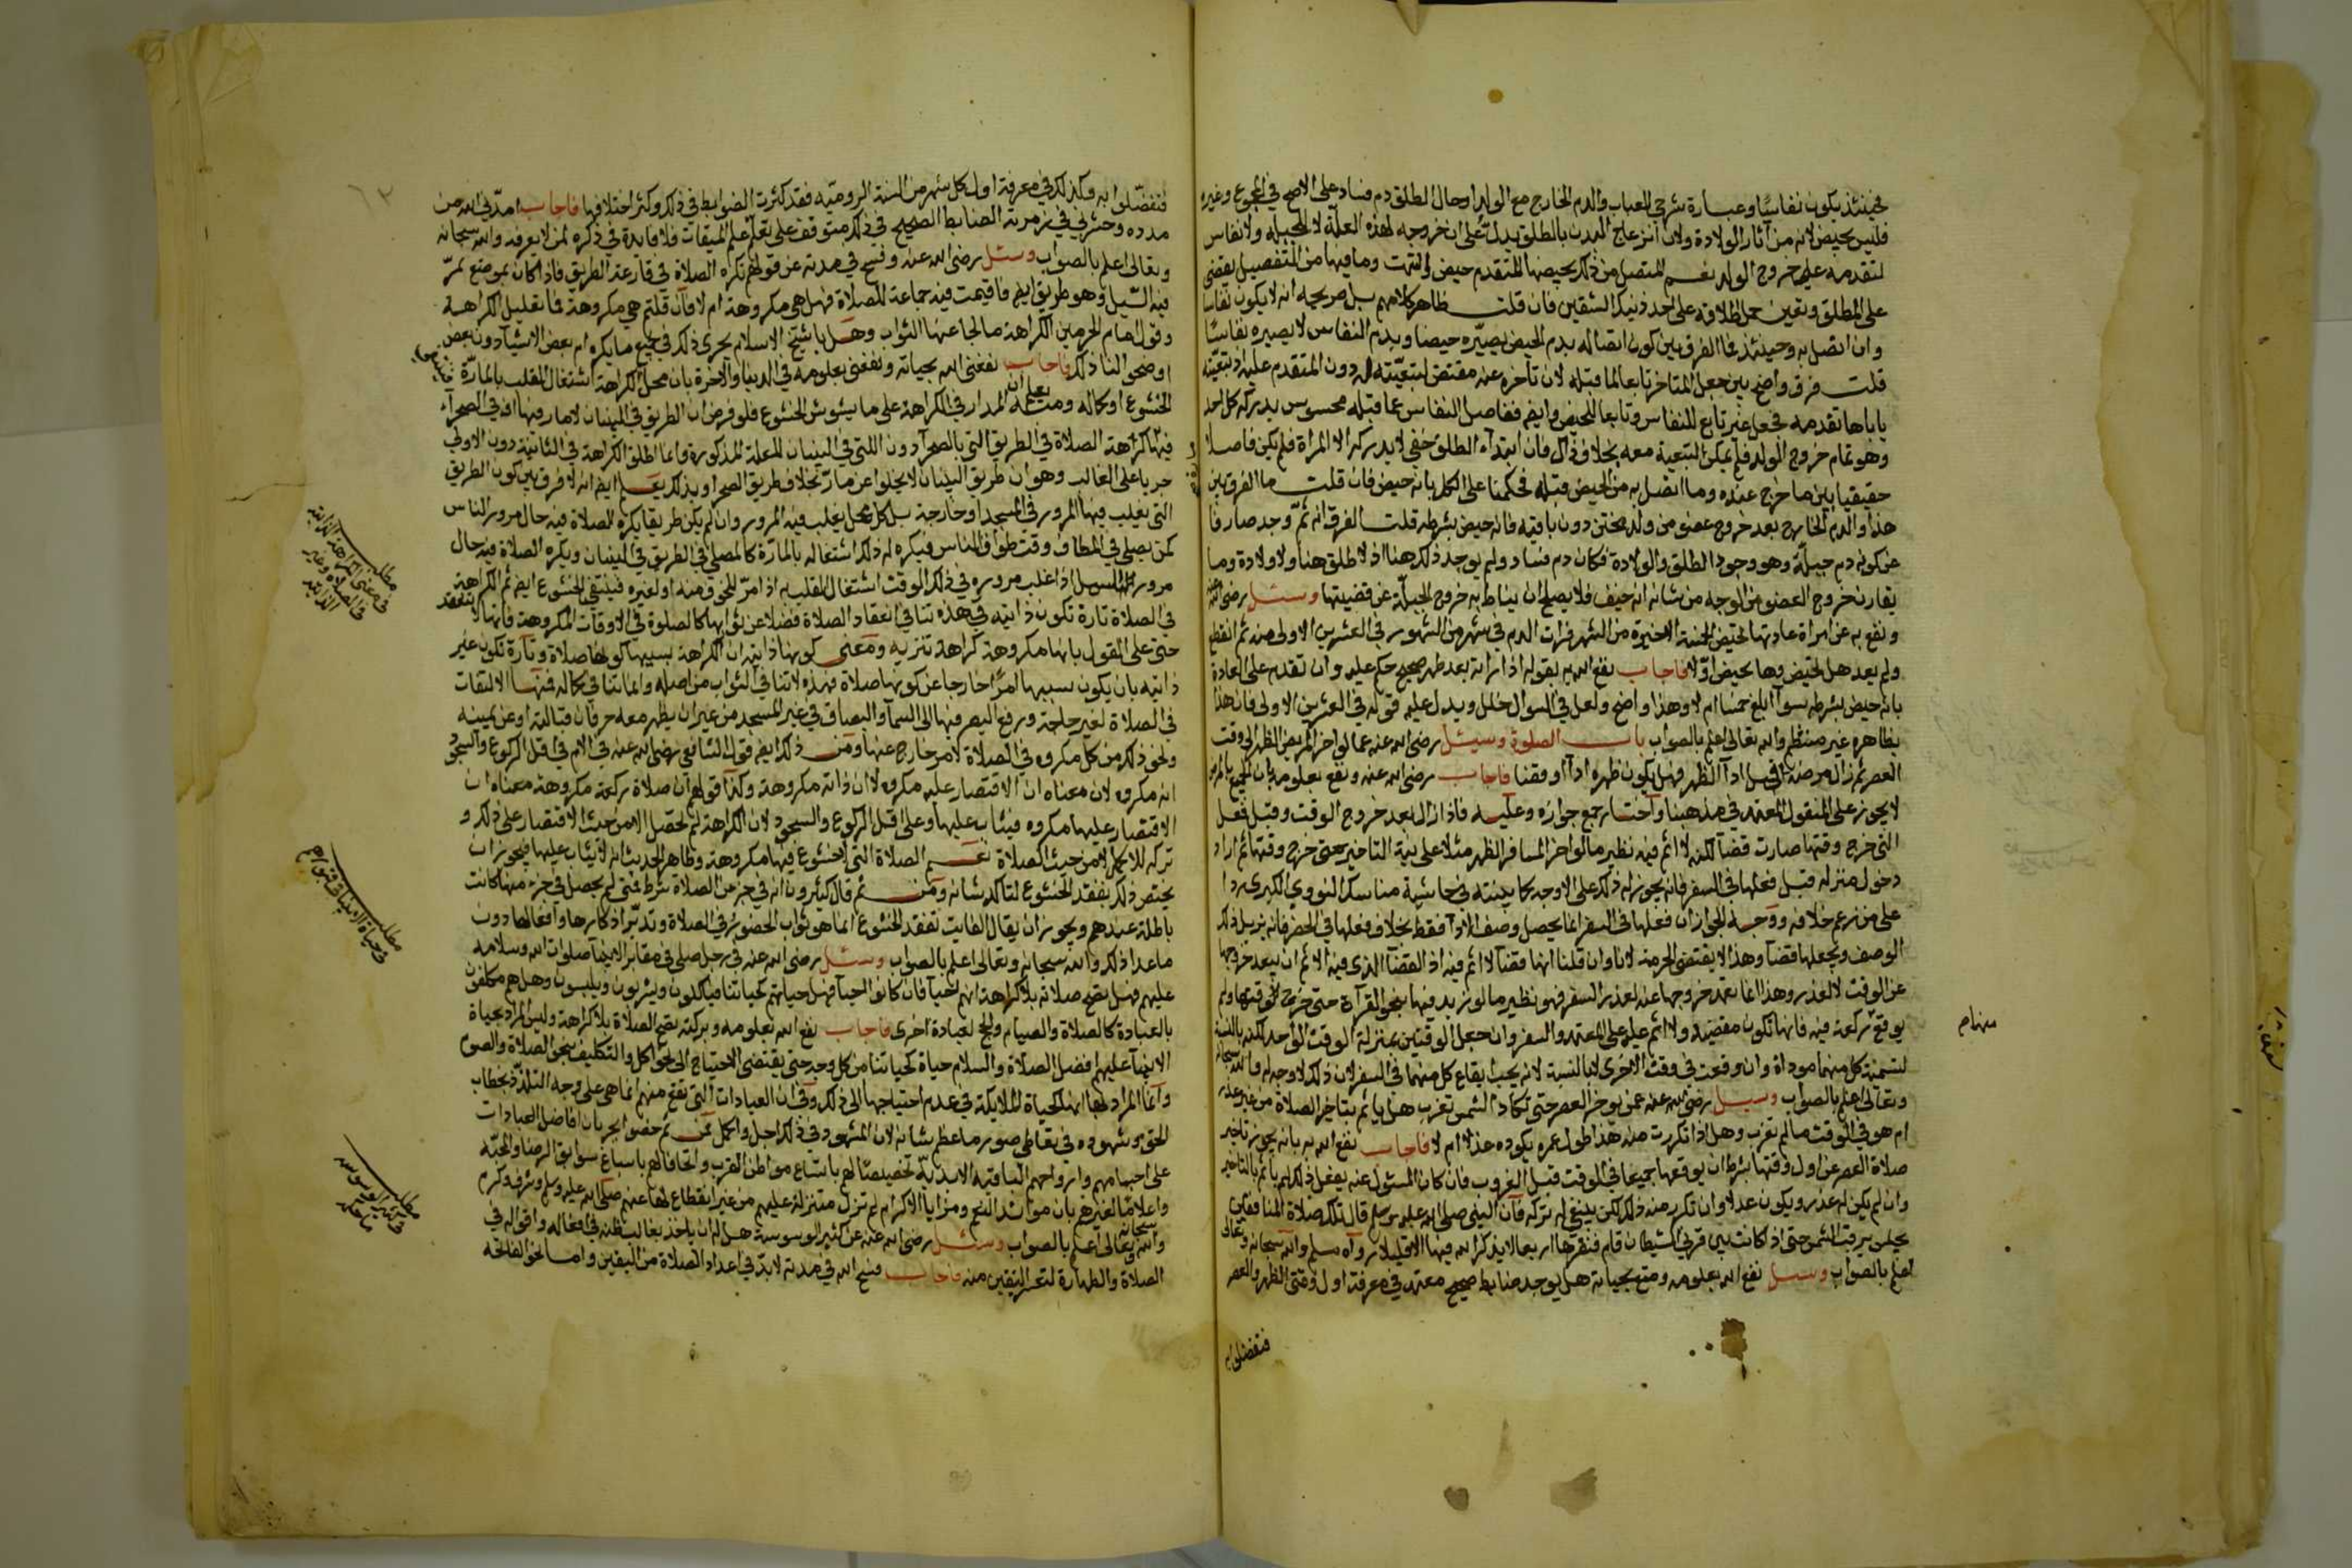 فحينئذ يكون نفاسًا وعبارة شرحي للعباب والدم الخارج مع الولد او حال الطلق دم فساد على الاصح في المجموع وغيره
فليس بحيض لانه من آثار الولادة ولان انزعاج البدن بالطلق يدل على ان خروجه لهذه العلة لا للجبلة ولا نفاس
لتقدمه على خروج الولد نعم المتصل من ذلك بحيضها المتقدم حيض انتهت وما فيها من التفصيل يقضي
على المطلق ويتعين حمل اطلاقه على احد ذينك الشقين فان قلت ظاهر كلامهم بل صريحه انه لا يكون نفاسا
وان اتصل به وحينئذ فما الفرق بين كون اتصاله بدم الحيض يصيّره حيضا وبدم النفاس لا يصيره نفاسًا
قلت فرق واضح بين جعل المتاخر تابعا لما قبله لان تاخره عنه مقتض لتبعيّته له دون المتقدم عليه اذ تبعيّته
ياباها تقدمه فجعل غير تابع للنفاس وتابعا للحيض وايضا ففاصل النفاس عما قبله محسوس يدركه كل احد
وهو تمام خروج الولد فلم يمكن التبعية معه بخلاف ذاك فان ابتداء الطلق خفي لا يدركه الا المراة فلم يكن فاصلا
حقيقيا بين ما خرج عنده وما اتصل به من الحيض قبله فحكمنا على الكل بانه حيض فان قلت ما الفرق بين
هذا والدم الخارج بعد خروج عضو من ولد مجتن دون باقيه فانه حيض بشرطه قلت الفرق انه ثمّ وجد صارفا
عن كونه دم جبلّة وهو وجود الطلق والولادة فكان دم فساد ولم يوجد ذلك هنا اذ لا طلق هنا ولا ولادة وما
يقارن خروج العضو من الوجه من شانه انه خيف فلا يصلح ان يناط به خروج الجبلّة عن قضيتها وسئل رضي الله عنه
ونفع به عن امراة عادتها تحيض الخمسة الاخيرة من الشهر فرات الدم في شهر من الشهور في العشرين الاولى منه ثم انقطع
ولم يعد هل تحيض وها بحيض اوّلا فاجاب نفع الله به بقوله اذا راته بعد طهر صحيح حكم عليه وان تقدم على العادة
بانه حيض بشرطه سوآ ابلغ خمسا ام لا وهذا واضح ولعل في السوال خلل ويدل عليه قوله في العشرين الاولى فان هذا
بظاهره غير منتظم والله تعالى اعلم بالصواب باب الصلوة وسئل رضي الله عنه عما لو اخر المريض الظهر الى وقت
العصر ثم زال مرضه اقبل ادآ الظهر فهل يكون ظهره ادآ او قضا فاجاب رضي الله عنه ونفع بعلومه بان الجمع بالمرض
لا يجوز على المنقول المعتمد في مذهبنا واختار جمع جوازه وعليه فاذا زال بعد خروج الوقت وقبل فعل
التي خرج وقتها صارت قضآ لكنه لا اثم فيه نظير ما لو اخر المسافر الظهر مثلا على نية التاخير حتى خرج وقتها ثم اراد
دخول منزله قبل فعلها في السفر فانه يجوز له ذلك على الاوجه كما بينته في حاشية مناسك النووي الكبرى ردا
على من زعم خلافه ووجه الجواز ان فعلها في السفر انما يحصل وصف الادآ فقط بخلاف فعلها في الحضر فانه يزيل ذلك
الوصف ويجعلها قضآ وهذا لا يقتضي الحرمة لانا وان قلنا انها قضآ لا اثم فيه اذ القضآ الذي فيه الاثم ان يتعمد خروجها
عن الوقت لا لعذر وهذا انما تعمد خروجها عنه لعذر السفر فهو نظير ما لو زيد فيها بنحو القراءة حتى خرج الوقت ولم
يوقع ركعة فيه فانها تكون مقضية ولا اثم عليه على المعتمد والسفر وان جعل الوقتين بمنزلة الوقت الواحد لكنه بالنسبة
لتسمية كل منهما موداة وان وقعت في وقت الاخرى لا بالنسبة لانه يجب ايقاع كل منهما في السفر لان ذلك لا وجه له والله سبحانه
وتعالى اعلم بالصواب وسيل رضي الله عنه عمن يوخر العصر حتى تكاد الشمس تغرب هل ياثم بتاخير الصلاة من غير عذر
ام هو في الوقت ما لم تغرب وهل اذا تكررت منه هذا طول عمره يكون هذا ام لا فاجاب نفع الله به بانه يجوز تاخير
صلاة العصر عن اول وقتها بشرط ان يوقعها جميعا في الوقت قبل الغروب فان كان المسئول عنه يفعل ذلك لم ياثم بالتاخير
وان لم يكن له عذر ويكون عدلا وان تكرر منه ذلك لكن ينبغي له تركه فان النبي صلى الله عليه وسلم قال تلك صلاة المنافقين
يجلس يرقب الشمس حتى اذا كانت بين قرني الشيطان قام فنقرها اربعا لا يذكر الله فيها الا قليلا رواه مسلم والله سبحانه وتعالى
اعلم بالصواب وسيل نفع الله بعلومه ومتع بحياته هل يوجد ضابط صحيح معتمد في معرفة اول وقتي الظهر والعصر
فتفضلوا به
منهام
فتفضّلوا به وكذلك في معرفة اول كل شهر من السنة الروميّه فقد كثرت الضوابط في ذلك وكثر اختلافها فاجاب امدّني الله من
مدده وحشرني في زمرته الضابط الصحيح في ذلك متوقف على تعلّم علم الميقات فلا فايدة في ذكره لمن لا يعرفه والله سبحانه
وتعالى اعلم بالصواب وسئل رضي الله عنه وفسح في مدته عن قولهم تكره الصلاة في قارعة الطريق فاذا كان بموضع تمرّ
فيه السيل وهو طريق ايضا فاقيمت فيه جماعة للصلاة فهل هي مكروهة ام لا فان قلتم هي مكروهة فما تعليل الكراهة
وقول امام الحرمين الكراهة مالجا عنها الثواب وهل يا شيخ الاسلام يجري ذلك في جميع ما يكره ام بعض الاشيا دون بعض
اوضحوا لنا ذلك فاجاب نفعني الله بحياته ونفعني بعلومه في الدنيا والاخرة بان محل الكراهة اشتغال القلب بالمارّة
الخشوع او كماله ومنه يعلم ان المدار في الكراهة على ما يشوش الخشوع فلو فرض ان الطريق في البنيان لا مار فيها او في الصحراء
فيها كراهة الصلاة في الطريق التي بالصحرآ دون اللتي في البنيان للعلة المذكورة وانما اطلق الكراهة في الثانية دون الاولى
جريا على الغالب وهو ان طريق البنيان لا يخلوا عن مارّ بخلاف طريق الصحرا وبذلك يعلم ايضا انه لا فرق بين كون الطريق
التي يغلب فيها المرور في المسجد او خارجه بل كل محل يغلب فيه المرور وان لم يكن طريقا يكره الصلاة فيه حال مرور الناس
كمن يصلي في المطاف وقت طواف الناس فيكره له ذلك لاشتغاله بالمارّة كالمصلي في الطريق في البنيان ويكره الصلاة فيه حال
مرور السيل اذا غلب مروره في ذلك الوقت اشتغال القلب به اذا مرّ للخوف منه او لغيره فينتفي الخشوع ايضا ثم الكراهة
في الصلاة تارة تكون ذاتيه في هذه تنافي انعقاد الصلاة فضلا عن ثوابها كالصلوة في الاوقات المكروهة فانها لا تنعقد
حتى على القول بانها مكروهة كراهة تنزيه ومعنى كونها ذاتيه ان الكراهة بسببها كونها صلاة وتارة تكون غير
ذاتيه بان يكون سببها امرًا خارجا عن كونها صلاة فهذه لا تنافي الثواب من اصله وانما تنافي كماله فمنها الالتفات
في الصلاة لغير حاجة ورفع البصر فيها الى السمآ والبصاق في غير المسجد من غير ان يظهر معه حرفان قبالته او عن يمينه
ونحو ذلك من كل مكروه في الصلاة لامر خارج عنها ومن ذلك ايضا قول الشافعي رضي الله عنه في الام في اقل الركوع والسجود
انه مكروه لان معناه ان الاقتصار عليه مكروه لا ان ذاته مكروهة وكذا قولهم ان صلاة ركعة مكروهة معناه ان
الاقتصار عليها مكروه فيثاب عليها وعلى اقل الركوع والسجود لان الكراهة لم تحصل الا من حيث الاقتصار على ذلك و
تركه للاكمل لا من حيث الصلاة نعم الصلاة التي لا خشوع فيها مكروهة وظاهر الحديث انه لا يثاب عليها فيجوز ان
يختص ذلك بفقد الخشوع لتاكد شانه ومن ثم قال كثيرون انه في جزء من الصلاة شرط فمتى لم يحصل في جزء منها كانت
باطلة عندهم ويجوز ان يقال الفايت بفقد الخشوع انما هو ثواب الحضور في الصلاة وتدبّر اذكارها وافعالها دون
ما عدا ذلك والله سبحانه وتعالى اعلم بالصواب وسئل رضي الله عنه في رجل صلى في مقابر الانبيآ صلوات الله وسلامه
عليهم فهل تصح صلاته بلا كراهة لانهم احيآ فان كانوا احيآ فهل حياتهم كحياتنا فياكلون ويشربون ويلبسون وهل هم مكلفون
بالعبادة كالصلاة والصيام والحج لعبادة اخرى فاجاب نفع الله بعلومه وبركته تصح الصلاة بلا كراهة وليس المراد بحياة
الانبيآ عليهم افضل الصلاة والسلام حياة كحياتنا من كل وجه حتى يقتضي الاحتياج الى نحو اكل والتكليف بنحو الصلاة والصوم
وانما المراد بها انها كحياة الملايكة في عدم احتياجها الى ذلك وفي ان العبادات التي تقع منهم انما هي على وجه التلذّذ بخطاب
الحق وشهوده في تعاطي صور ما عظم شانه لان المشهود في ذلك اجل واكمل ومن ثم خصوا بجريان افاضل العبادات
على اجسامهم وارواحهم الباقيه الابديّه تخصيصًا لهم باتساع مواطن القرب واتحافا لهم باسباغ سوابق الرضا والمحبّة
واعلامًا لغيرهم بان موائد النعم ومزايا الاكرام لم تزل متنزلة عليهم من غير انقطاع لها عنهم صلى الله عليه وسلم وشرف وكرم
والله سبحانه وتعالى اعلم بالصواب وسئل رضي الله عنه عن كثير الوسوسة هل له ان ياخذ بغالب ظنه في افعاله واقواله في
الصلاة والطهارة لتعسر اليقين منه فاجاب فسح الله في مدته لا بدّ في اعداد الصلاة من اليقين واما نحو الفاتحة
مطلب
في معنى الكراهة الذاتية
في الصلاه وغير
الذاتيه
مطلب
في حياة الانبيا في قبورهم
مطلب
في كثير الوسوسه
ما حكمه